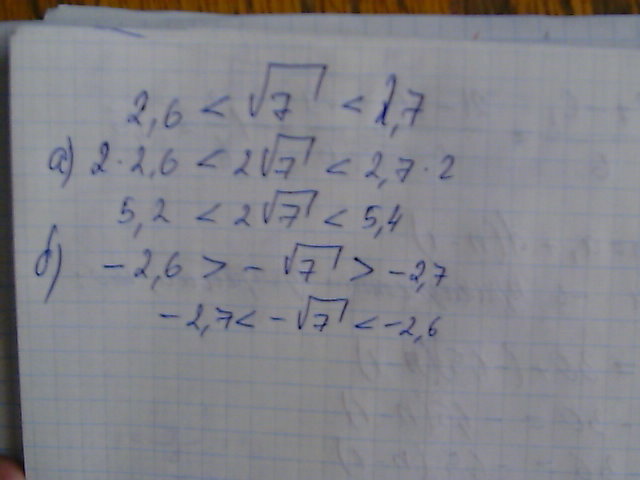 2,6 < √7 < 2,7
а) 2·2,6 < 2√7 < 2,7·2
5,2 < 2√7 < 5,4
б) -2,6 > -√7 > -2,7
-2,7 < -√7 < -2,6